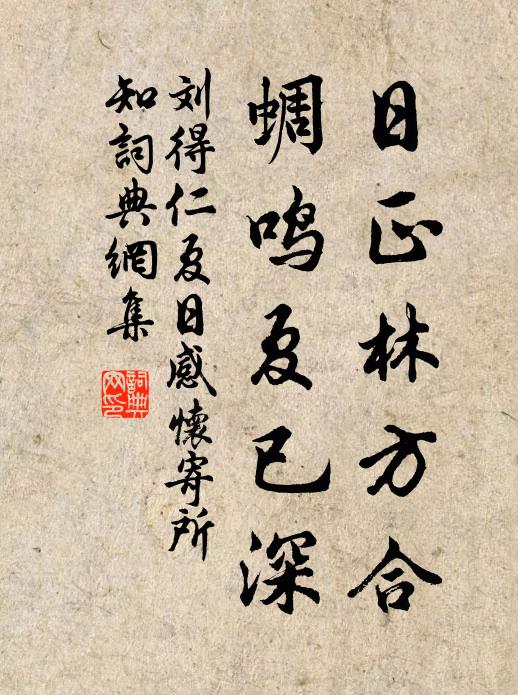 日正林方合
蜩鸣夏已深
刘得仁夏日感懷寄所
知詞典網集
詞典
网印